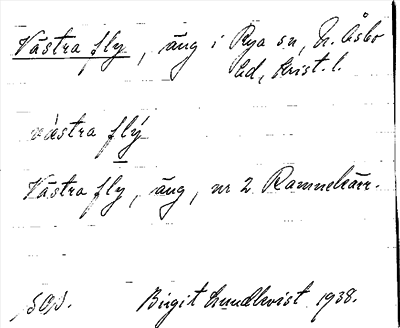 Västra fly, äng i Rya sn, N. Åsbo
hd, Krist. l.
västra flý
Västra fly, äng, nr 2 Rammekärr.
SOA.
Birgit Lundkvist 1938.